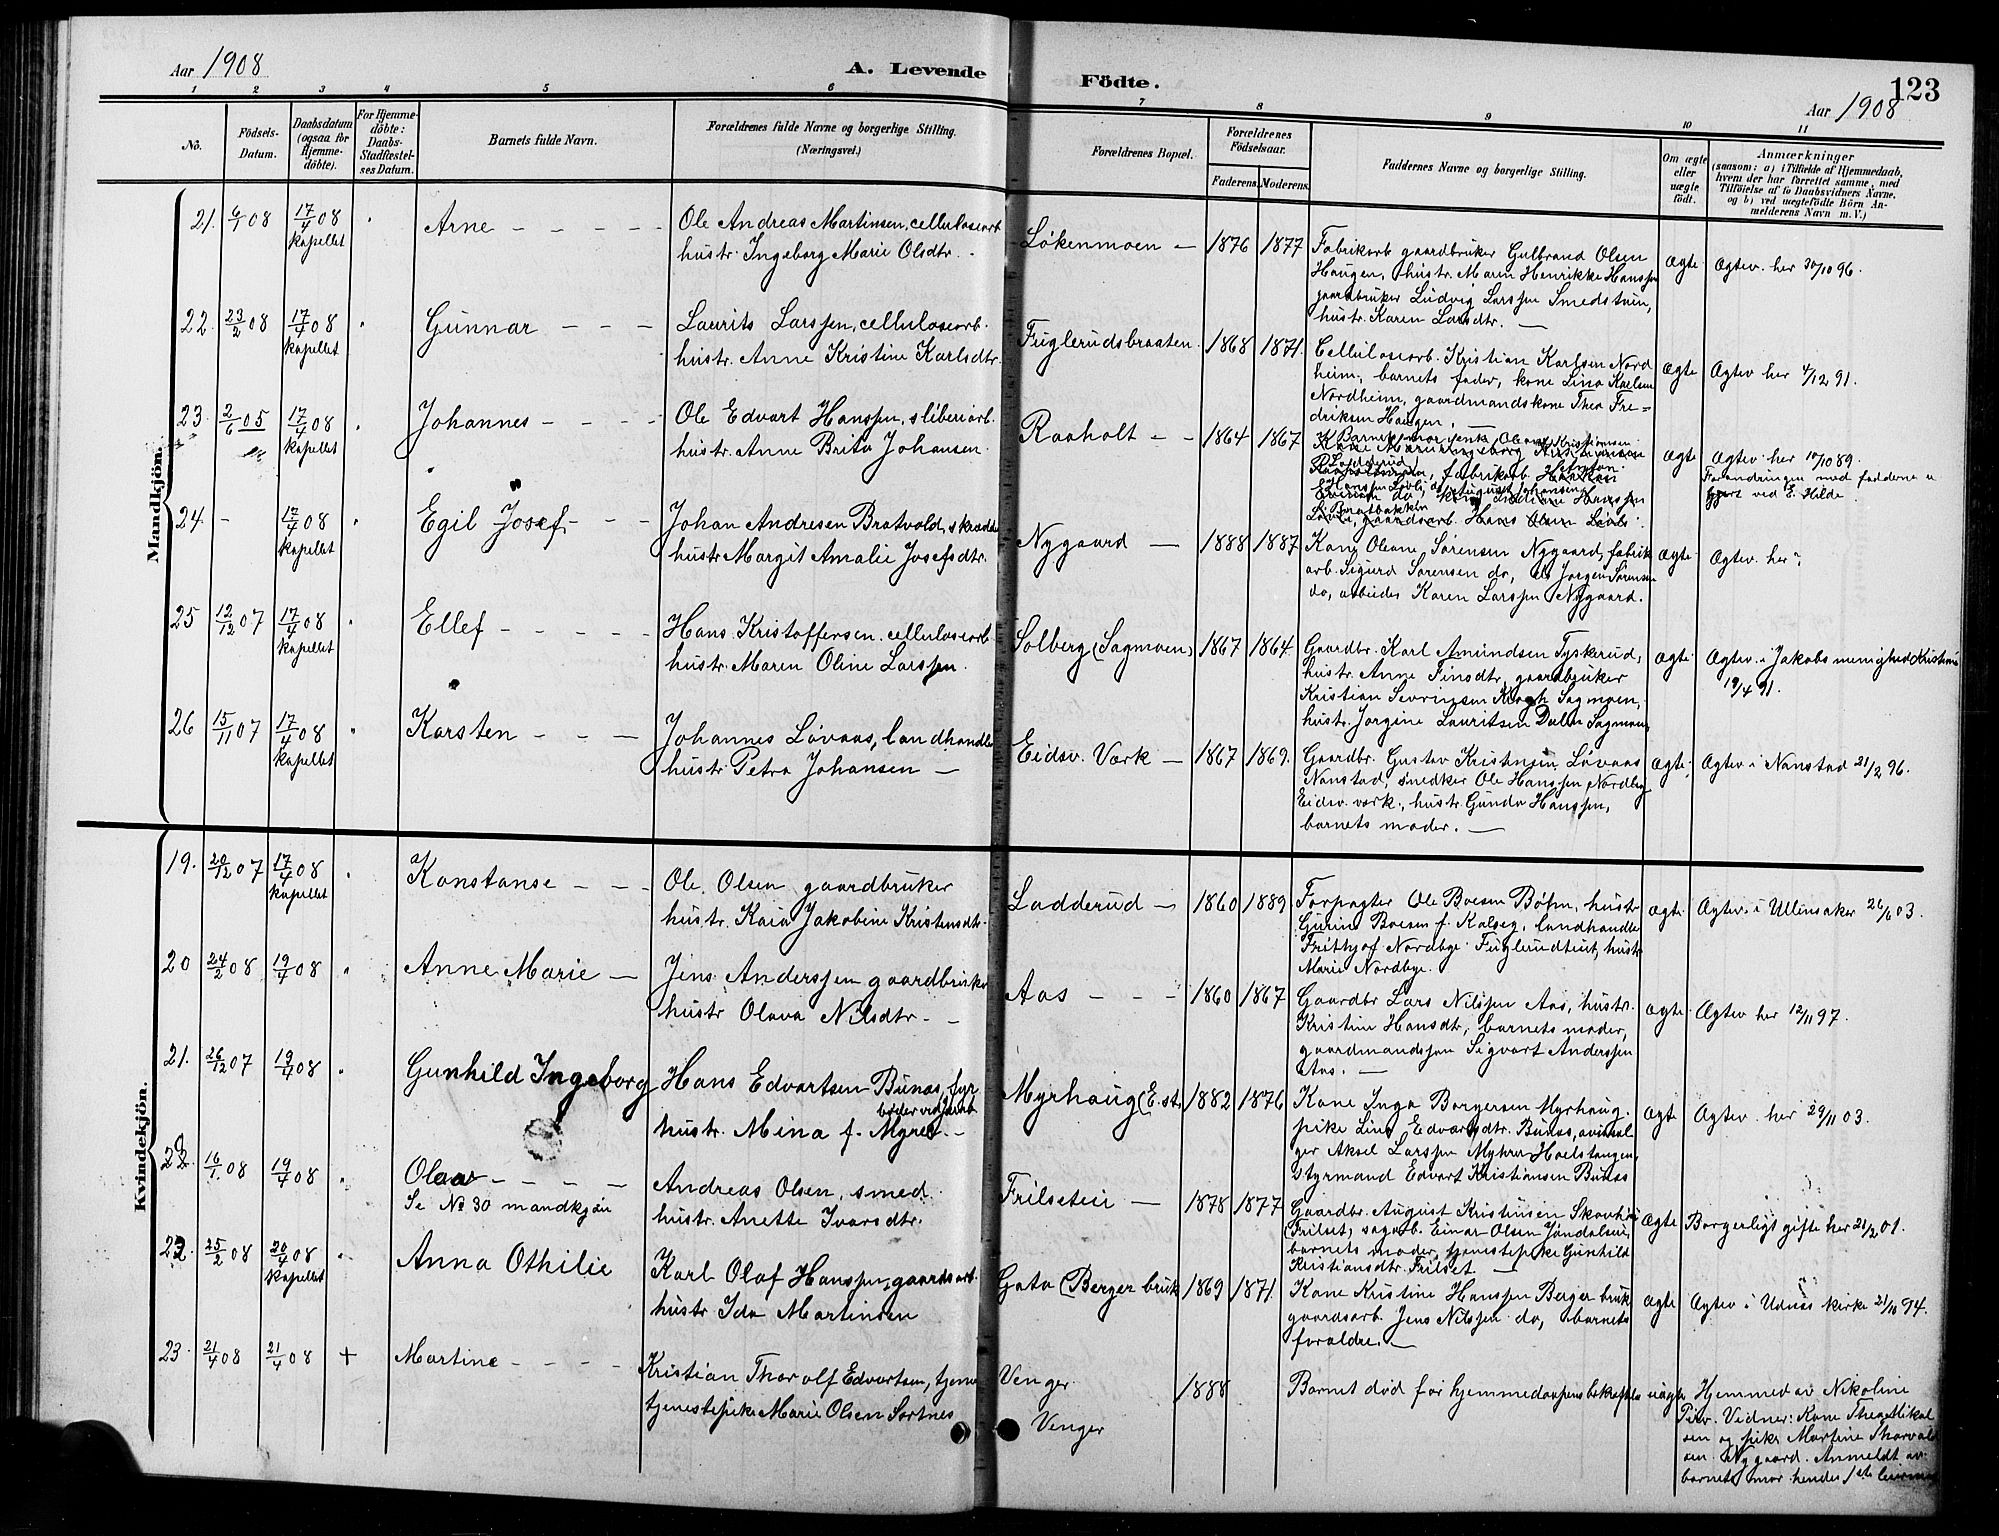 Aar 1908
A. Levende Födte.
123
Aar 1908
1 2 3 4 5 6 7 8 9 10 11
No.
Födsels-
Datum.
Daabsdatum
(ogsaa for
Hjemme-
döbte).
For Hjemme-
döbte:
Daabs-
Stadfæstel-
ses Datum.
Barnets fulde Navn.
Forældrenes fulde Navne og borgerlige Stilling.
(Næringsvei.)
Forældrenes Bopæl.
Forældrenes
Födselsaar.
Faderens. Moderens.
Faddernes Navne og borgerlige Stilling.
Om ægte
eller
uægte
födt.
Anmærkninger
(saasom: a) i Tilfælde af Hjemmedaab,
hvem der har forrettet samme, med
Tilföielse af to Daabsvidners Navne,
og b) ved uægtefödte Börn An-
melderens Navn m. V.)
Mandkjön.
21. 6/1 08 17/4 08 kapellet
Arne
Ole Andreas Martinsen, cellulosearb.
hustr. Ingeborg Marie Olsdtr.
Løkenmoen 1876 1877
Fabrikarb gaardbruker Gulbrand Olsen
Haugen, hustr. Maren Henrikke Hanssen
gaardbruker Ludvig Larssen Smedstuen,
hustr. Karen Larsdtr.
Ægte
Ægtev. her 30/10 96.
22. 23/2 08 17/4 08 kapellet
Gunnar
Laurits Larssen, cellulosearb.
hustr. Anne Kristine Karlsdtr.
Fuglerudsbraaten 1868 1871.
Cellulosearb. Kristian Karlsen Nord
heim, barnets fader, kone Lina Karlsen
Nordheim, gaardmandskone Thea Fre-
driksen Haugen.
Ægte
Ægtev her 4/12 91.
23. 2/6 05 17/4 08 kapellet
Johannes
Ole Edvart Hanssen, sliberiarb.
hustr. Anne Brita Johansen.
Raaholt 1864 1867
Ægte
Ægtev. her 10/10 89.
Forandringen med fadderne
gjort ved E. Hilde.
24. - 17/4 08 kapellet
Egil Josef
Johan Andresen Bratvold, skrædder
hustr Margit Amalie Josefsdtr.
Nygaard 1888 1887
Kone Oleane Sørensen Nygaard, fabrik
arb. Sigurd Sørensen do, do Jørgen Sørensen
do, arbeider Karen Larssen Nygaard.
Ægte
Ægtev. her?
25 12/12 07 17/4 08 kapellet
Ellef
Hans Kristoffersen. cellulosearb.
hustr. Maren Oline Larssen.
Solberg (Sagmoen) 1867 1864
Gaardbr. Karl Amundsen Tyskerud,
hustr. Anne Finsdtr, gaardbruker
Kristian Sevrinsen Krogh Sagmoen,
hustr. Jørgine Lauritsen Dalen Sagmoen
Ægte
Ægtev. i Jakobs menighed Kristiania
19/4 91.
26 15/11 07 17/4 08 kapellet
Karsten
Johannes Løvaas, landhandler
hustr. Petra Johansen
Eidsv. Værk 1867 1869.
Gaardbr. Gustav Kristensen Løvaas
Nanstad, snedker Ole Hanssen Nordberg
Eidsv. værk., hustr Gunda Hanssen,
barnets moder.
Ægte
Ægtev i Nanstad 21/2 96.
Kvindekjön.
19. 20/12 07 17/4 08 kapellet
Konstanse
Ole. Olsen gaardbruker
hustr. Kaia Jakobine Kristensdtr.
Ladderud 1860 1889
Forpagter Ole Boesen Bøhn, hustr
Gurine Boesen f. Kalseg, landhandler
Frithjof Nordbye Fuglerudteiet, hustr
Marie Nordbye.
Ægte.
Ægtev. i Ullensaker 26/6 03.
20 24/2 08 19/4 08
Anne Marie
Jens Anderssen gaardbruker
hustr Olava Nilsdtr.
Aas 1860 1867
Gaardbr Lars Nilssen Aas, hustr.
Kristine Hansdtr, barnets moder,
gaardmandssøn Sigvart Anderssen
Aas.
Ægte.
Ægtev her 12/11 97.
21. 26/12 07 19/4 08
Gunhild Ingeborg
Hans Edvartsen Bunæs, fyr
bøder ved jernb
hustr. Mina f. Myrer.
Myrhaug (E.st. 1882 1876
Kone Inga Borgersen Myrhaug.
pike Lina Edvartsdtr. Bunæs, avissæl
ger Aksel Larssen Myhrer Hoelstangen,
styrmand Edvart Kristiansen Bunæs
Ægte
Ægtev. her 29/11 03.
22. 16/1 08 19/4 08
Olaa
Se No 30 mandkjøn
Andreas Olsen, smed.
hustr. Anette Ivarsdtr.
Frilseteie 1878 1877
Gaardbr. August Kristiansen Skovhus
(Frilset, sagarb. Einar Olsen Jøndalseie,
barnets moder, tjenestepike Gunhild
Kristiansdtr. Frilset
Ægte
Borgerligt gifte her 21/2 01.
22. 25/2 08 20/4 08 kapellet
Anna Othilie
Karl Olaf Hanssen, gaardsarb.
hustr Ida Martinsen
Gata (Berger bruk 1869 1871.
Kone Kristine Hanssen Berger bruk
gaardsarb. Jens Nilssen do, barnets
forældre.
Ægte
Ægtev i Udnæs kirke 21/10 94.
23. 21/4 08 21/4 08 +
Martine
Kristian Thoralf Edvartsen, tjener
tjenestepike Marie Olsen Sørtnes
Venger
Venger
1888
Barnet død før hjemmedaapens bekræftelse
uægte
Hjemmed av Nikoline
Vidner: Kone Thea Mikal
sen og pike Martine Thorvald
sen Nygaard. Anmeldt av
barnets mor hendes 1ste leiermaal